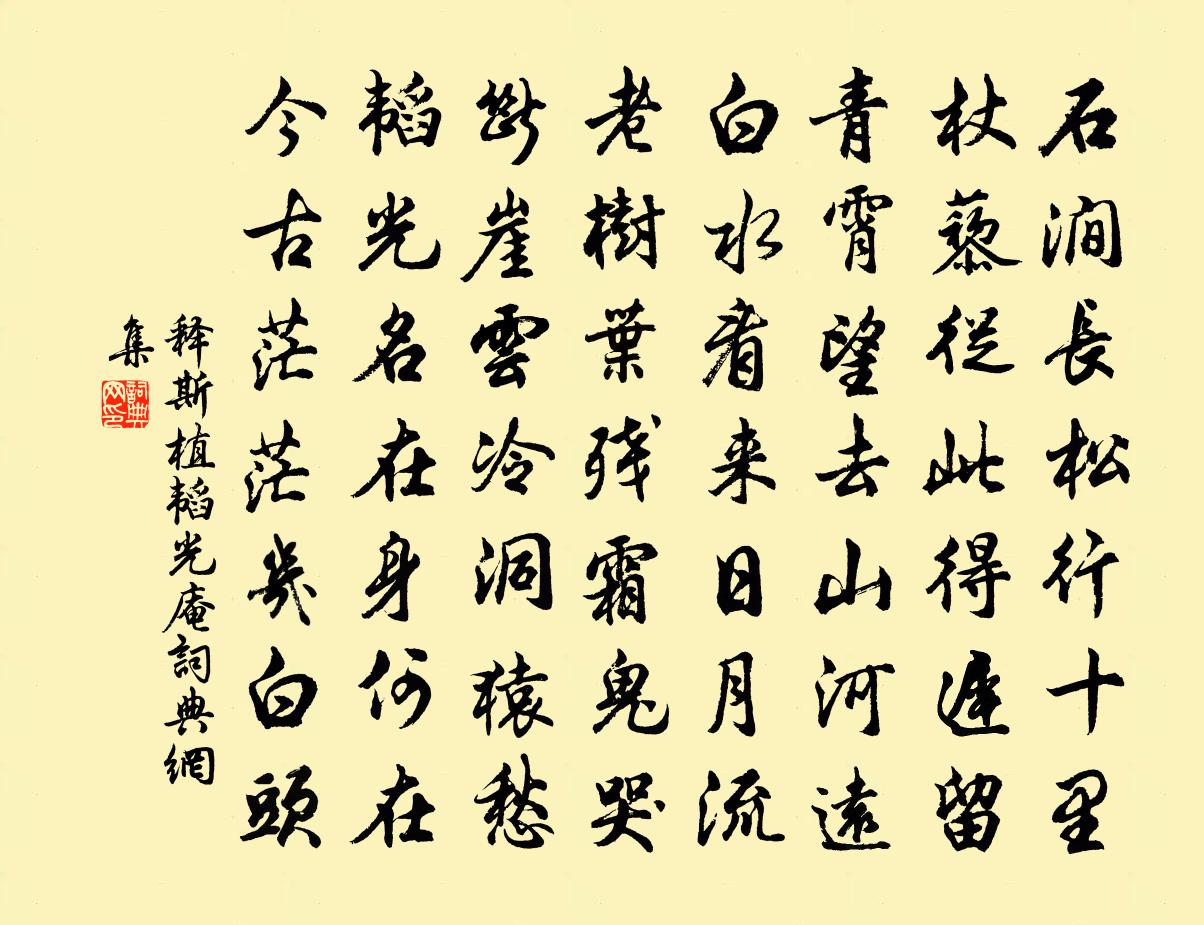 石澗長松行十里
杖藜從此得遲留
青霄望去山河遠
白水看来日月流
老樹葉残霜鬼哭
斷崖雲冷洞猿愁
韜光名在身何在
今古茫茫幾白頭
释斯植韜光庵詞典網
集
詞典网印